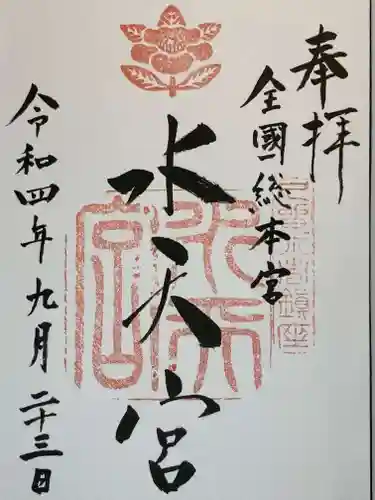 奉拝
全国総本宮
水天宮
令和四年九月二十三日